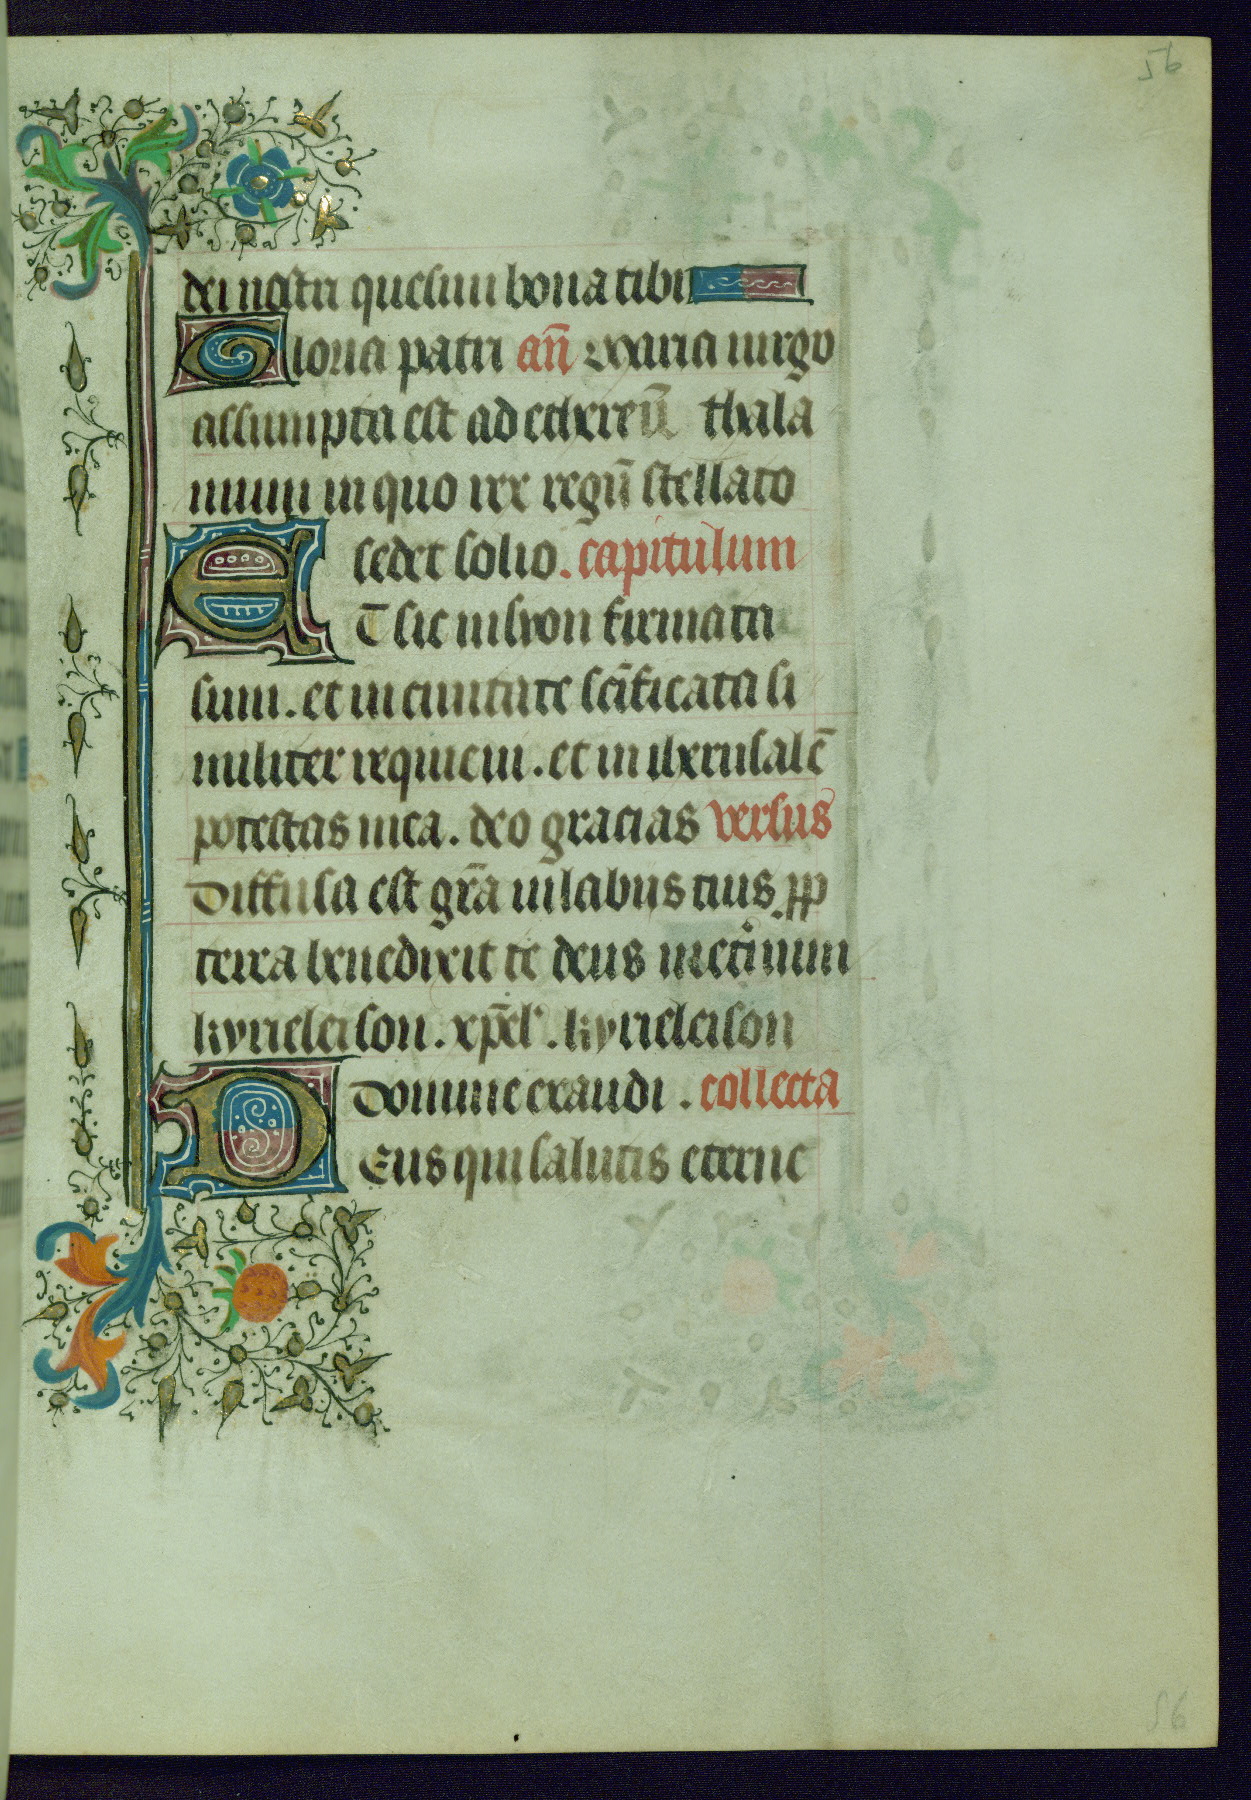 56
dei nostri quesiui bona tibi
Gloria patri an̄ Maria uirgo
assumpta est ad ethereū thala
mum in quo rex regū stellato
sedet solio. capitulum
ET sic in syon firmata
sum. et in ciuitate scīficata si
militer requieui. et in iherusalē
potestas mea. deo gracias versus
Diffusa est grā in labiis tuis. ꝓp
terea benedixit te deus in etīnum
kyrieleison. xp̄el'. kyrieleison
Domine exaudi. collecta
DEus qui salutis eterne
56